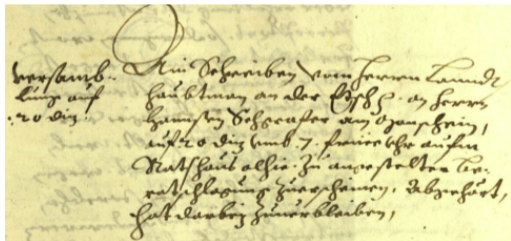 versamb-
lung auf
20 diz.
Ain Schreiben vom Herrn Lanndt
haubtman an der Etsch an Herrn
Hannsen
auf 20 diz umb 7. frueer Uhr aufm
Rathaus alhie zu angestelter be-
ratschlagung zuerscheinen, Abgehört,
hat darbej zuuerbleiben,